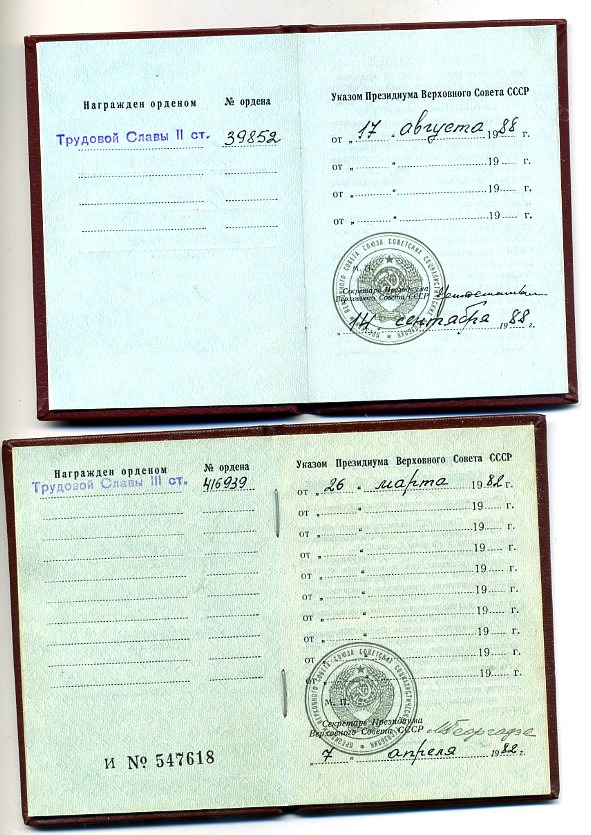 Награжден орденом № ордена
Трудовой Славы II ст. 39852
Указом Президиума Верховного Совета СССР
от „17 “ августа 1988 г.
от „ “ 19 г.
от „ “ 19 г.
от „ “ 19 г.
М. П.
Секретарь Президиума
Верховного Совета СССР
„14 “ сентября 1988 г.
Награжден орденом № ордена
Трудовой Славы III ст. 416939
Указом Президиума Верховного Совета СССР
от „26 “ марта 1982 г.
от „ “ 19 г.
от „ “ 19 г.
от „ “ 19 г.
от „ “ 19 г.
от „ “ 19 г.
от „ “ 19 г.
от „ “ 19 г.
от „ “ 19 г.
от „ “ 19 г.
М. П.
Секретарь Президиума
Верховного Совета СССР МГеоргадзе
„ 7 “ апреля 1982 г.
И № 547618